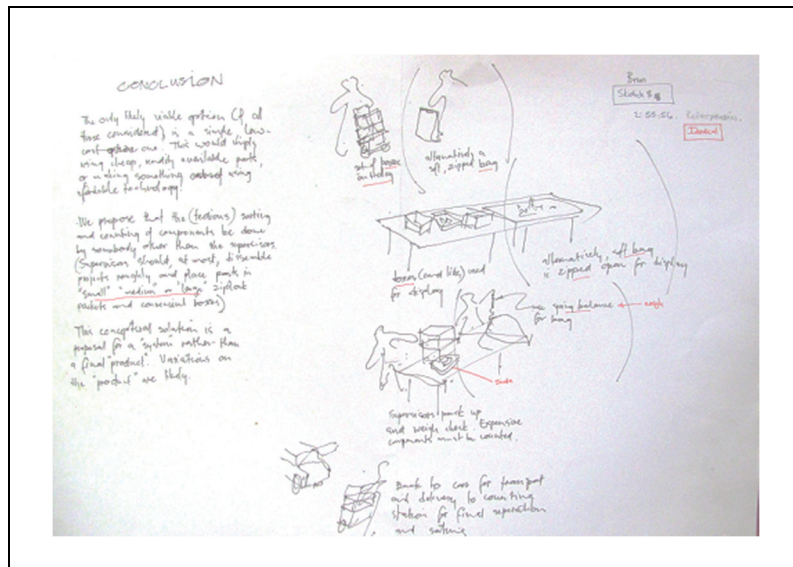 CONCLUSION
The only likely viable option (of all
those considered) is a simple, low-
cost option one. This would imply
using cheap, readily available parts,
or making something using
affordable technology.
We propose that the (tedious) sorting
and counting of components be done
by somebody other than the supervisors.
(Supervisors should, at most, dissemble
projects roughly and place parts in
"small" "medium" or "large" ziploc
packets and convenient boxes)
This conceptual solution is a
proposal for a "system" rather than
a final "product". Variations on
the "product" are likely.
set of boxes
on trolley
alternatively a
soft, zipped bag
Sketch 8
2:55:56.
boxes (and lids) used
for display
alternatively, soft bag
is zipped open for display
use spring balance
for bag
weigh
Scale
Supervisors pack up
and weigh check. Expensive
components must be counted.
Back to cars for transport
and delivery to counting
station for final separation
and sorting